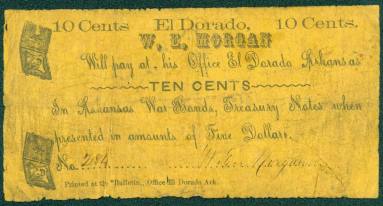 10 Cents El Dorado, 10 Cents.
W. E. MORGAN
Will pay at his Office El Dorado Arkansas
TEN CENTS
In Arkansas War Bonds, Treasury Notes when
presented in amounts of Five Dollars.
No. 284 Morgan
Printed at the "Bulletin," Office El Dorado Ark.